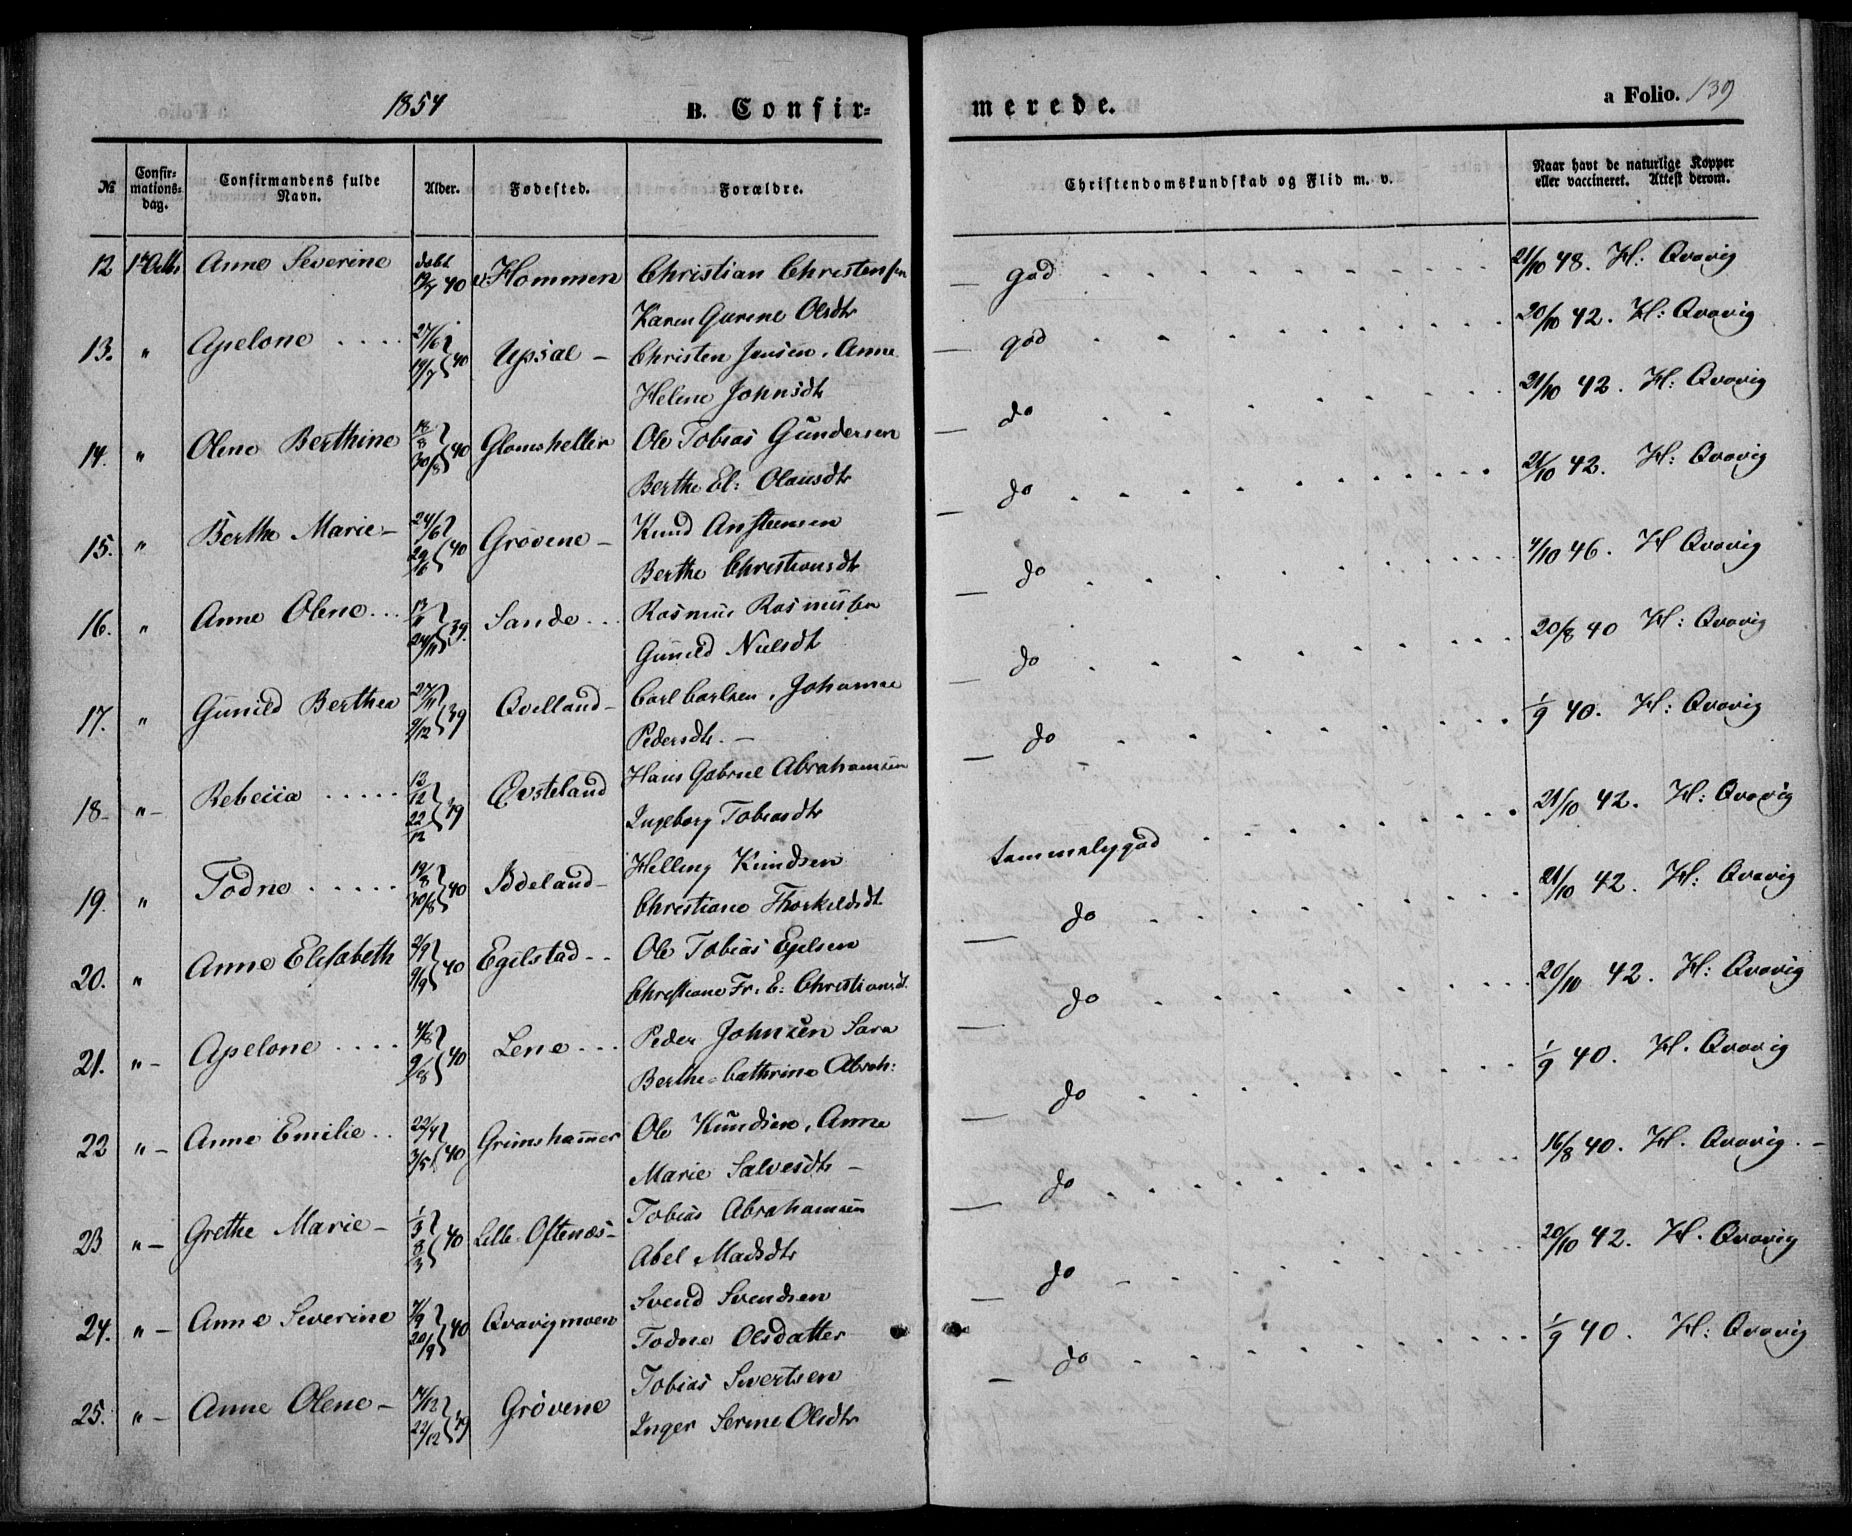 1854
B. Confir-
merede.
a Folio. 139
№
Confir-
mations-
dag.
Confirmandens fulde
Navn.
Alder.
Fødested.
Forældre.
Christendomskundskab og Flid m. v.
Naar havt de naturlige Kopper
eller vaccineret. Attest derom.
12 1 Octbr Anne Severine døbt 40 Hommen Christian Christensen god 21/10 48. H: Qvavig
Karen Gurine Olsdtr
13. " Apelone 27/6 19/7 40 Upsal – Christen Jensen, Anne god 20/10 42. H: Qvavig
Helene Johnsdtr
14. " Olene Berthine 18/8 30/8 40 Glomsheller Ole Tobias Gundersen do 21/10 42. H: Qvavig
Berthe El: Olausdtr
15. " Berthe Marie – 24/6 29/6 40 Grøvene – Knud Anstensen do 21/10 42. H: Qvavig
Berthe Christiansdtr
16. " Anne Olene 24/11 39. Sande Rasmus Rasmussen do 4/10 46. H Qvavig
Gunild Nielsdt
17. " Gunild Berthea 27/11 9/12 39 Qvelland – Carl Carlsen, Johanne do 20/8 40 H: Qvavig
Pedersdtr. –
18 – " – Rebecca 13/12 22/12 39 Øvsteland Hans Gabriel Abrahamsen do 1/9 40. H: Qvavig
Ingeborg Tobiasdtr
19. " Todne 19/8 30/8 40 Iddeland – Helling Knudsen temmelig god 21/10 42. H: Qvavig
Christiane Thorkeldsdt
20. " Anne Elisabeth 2/9 9/9 40 Egilstad – – Ole Tobias Egelsen do 21/10 42. H: Qvavig
Christiane Fr: E: Christiansdt.
21. " – Apelone 4/8 9/8 40 Lene Peder Johnsen Sara do 20/10 42. H: Qvavig
Berthe Cathrine Abrah:
22 " – Anne Emilie 22/4 3/5 40 Grimshammer Ole Knudsen, Anne do 1/9 40. H. Qvavig
Marie Salvesdtr –
23 " – Grethe Marie – 1/3 8/3 40 Lille Oftenæs – Tobias Abrahamsen do 16/8 40. H. Qvavig. –
Abel Madsdtr
24. " – Anne Severine 7/9 20/9 40 Qvavigmoen Svend Svendsen do 20/10 42. H. Qvavig
Todne Olsdatter
25. " – Anne Olene – 7/12 22/12 39 Grøvene Tobias Sivertsen do 1/9 40. H: Qvavig
Inger Serine Olsdtr